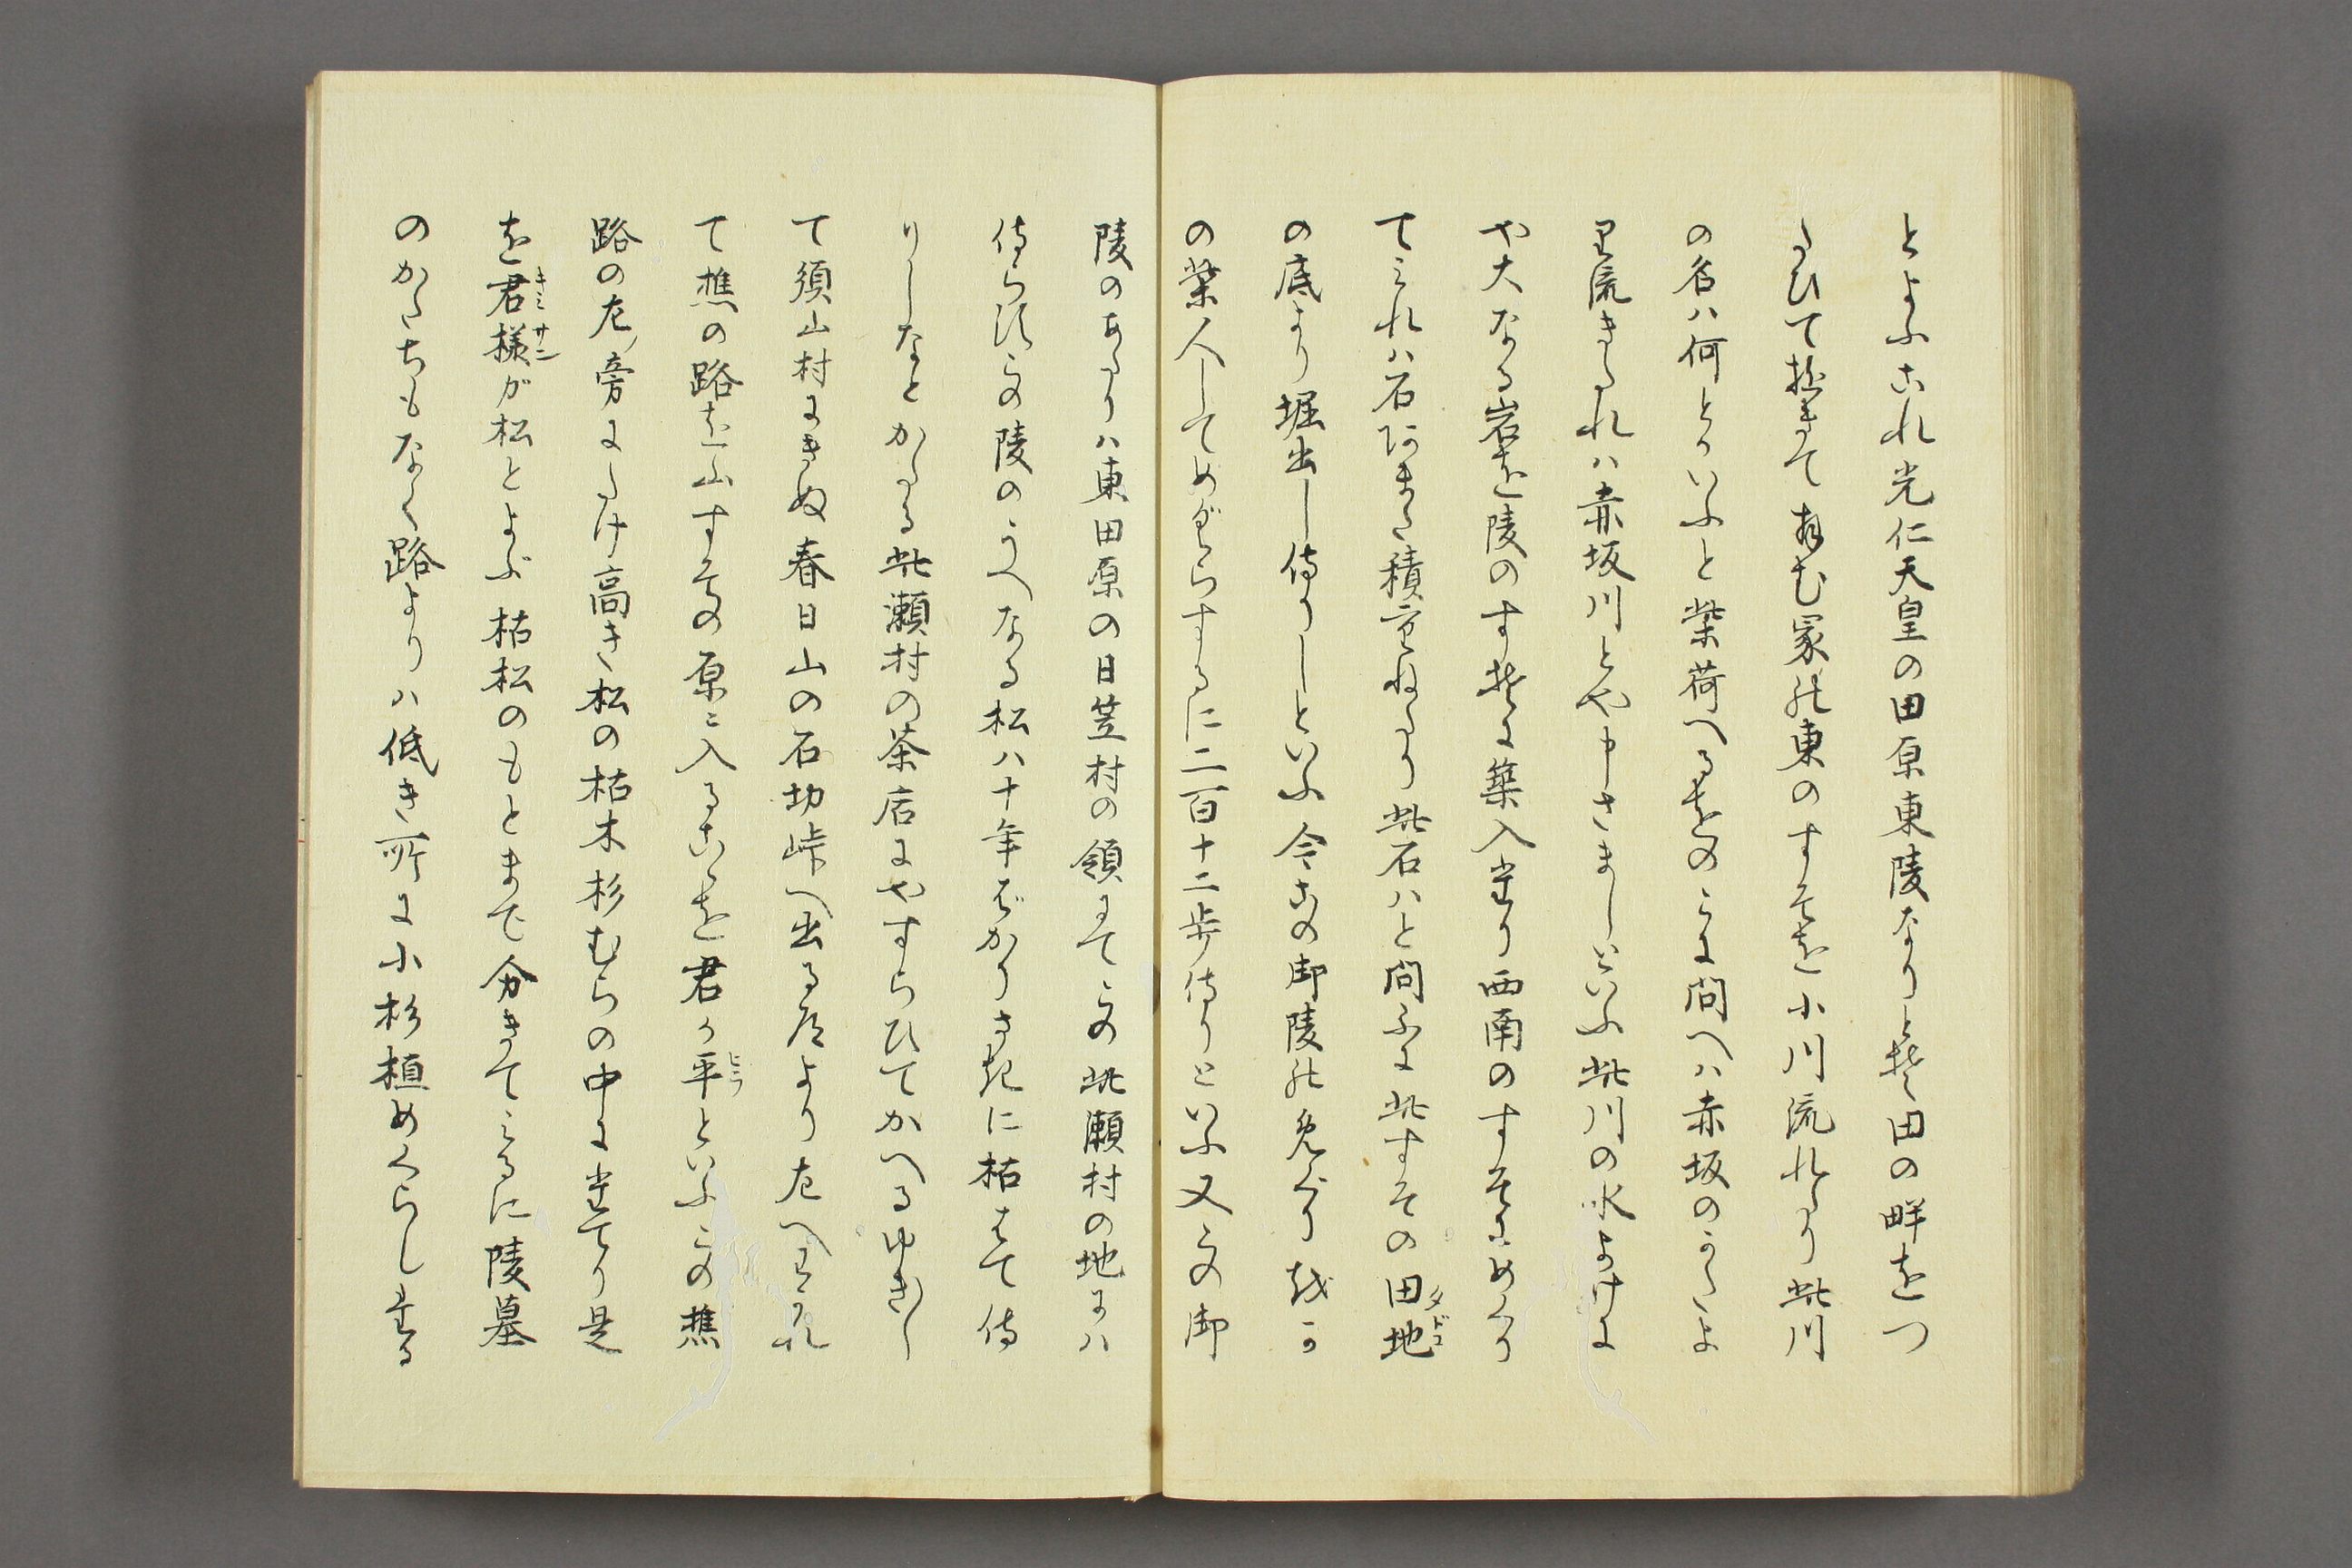 とよふこれ光仁天皇の田原東陵なりとそ田の畔をつ
たひて起きて拝む冢の東のすそを小川流れたり此川
の名ハ何とかいふと柴荷へるをのこに問へハ赤坂のかたよ
り流きたれハ赤坂川とや申さましといふ此川の水よけに
や大なる岩を陵のすそに築入たり西南のすそにめくり
てみれハ石あまた積重ねたり此石ハと問ふに此すその田地タドコ
の底より堀出し侍りしといふ今この御陵のめくりをか
の柴人してめぐらするに二百十二歩侍りといふ又この御
陵のあたりハ東田原の日笠村の領にてこの此瀬村の地にハ
侍らすこの陵のうへなる松ハ十年ばかりさきに枯はて侍
りしなとかたる此瀬村の茶店にやすらひてかへるゆきゆき
て須山村にきぬ春日山の石切峠へ出る道より左へわかれ
て樵の路を山すその原に入るこゝを君か平ヒラといふこの樵
路の左旁にたけ高き松の枯木杉むらの中にたてり是
を君様キミサンが松とよぶ枯松のもとまて分きてみるに陵墓
のかたちもなく路よりハ低き所に小杉植めくらしたる